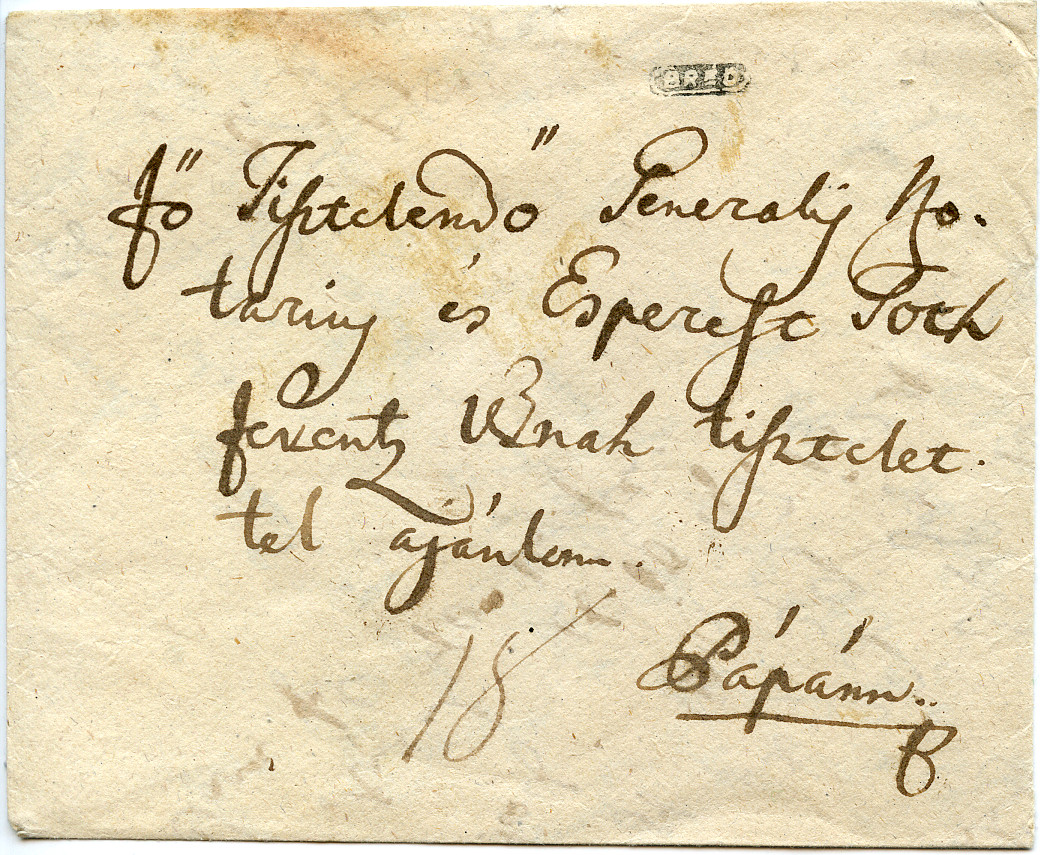 BRZO
Fő Tisztelendő Generalis No-
tarius és Esperest Toth
Ferentz Urnak tisztelet-
tel ajánlom.
18
Pápánn.